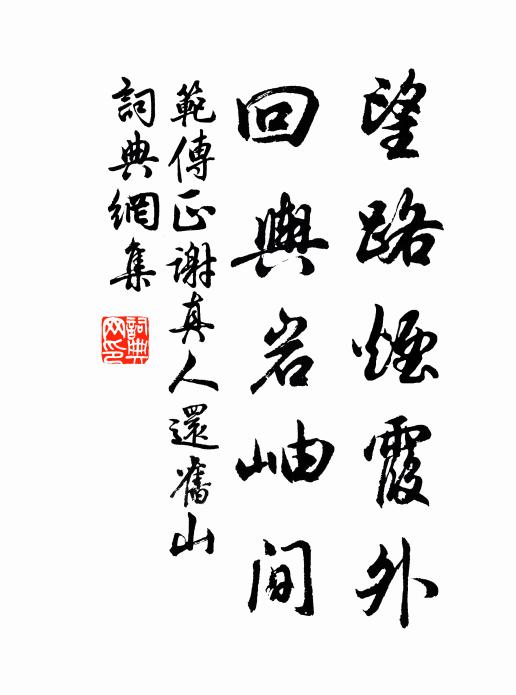 望路煙霞外
回輿岩岫間
範傳正謝真人還舊山
詞典網集
詞典網印